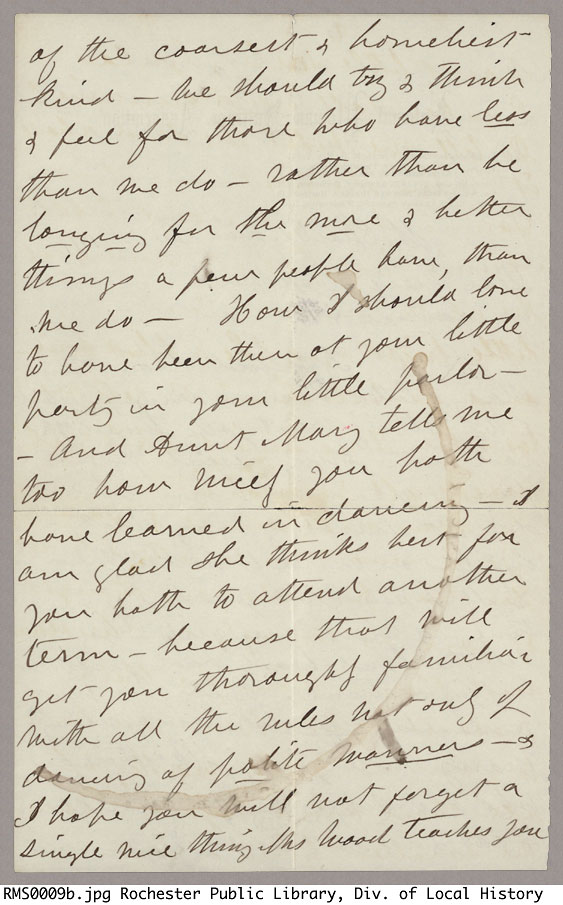 of the coarsest & homeliest
kind — We should try & think
& feel for those who have less
than we do — rather than be
longing for the more & better
things a few people have, than
we do — How I should love
to have been there at your little
party in your little parlor —
— And Aunt Mary tells me
too how nicely you both
have learned in dancing — I
am glad she thinks best for
you both to attend another
term — because that will
get you thoroughly familiar
with all the rules not only of
dancing of polite manners — &
I hope you will not forget a
single nice thing Mrs Wood teaches you
RMS0009b.jpg Rochester Public Library, Div. of Local History